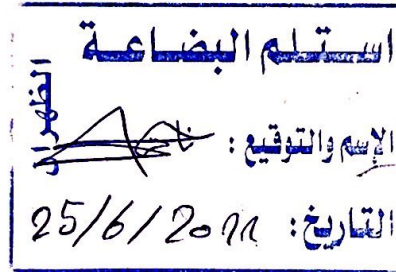 استلم البضاعة
الظهران
الإسم والتوقيع :
التاريخ: 25/6/2011